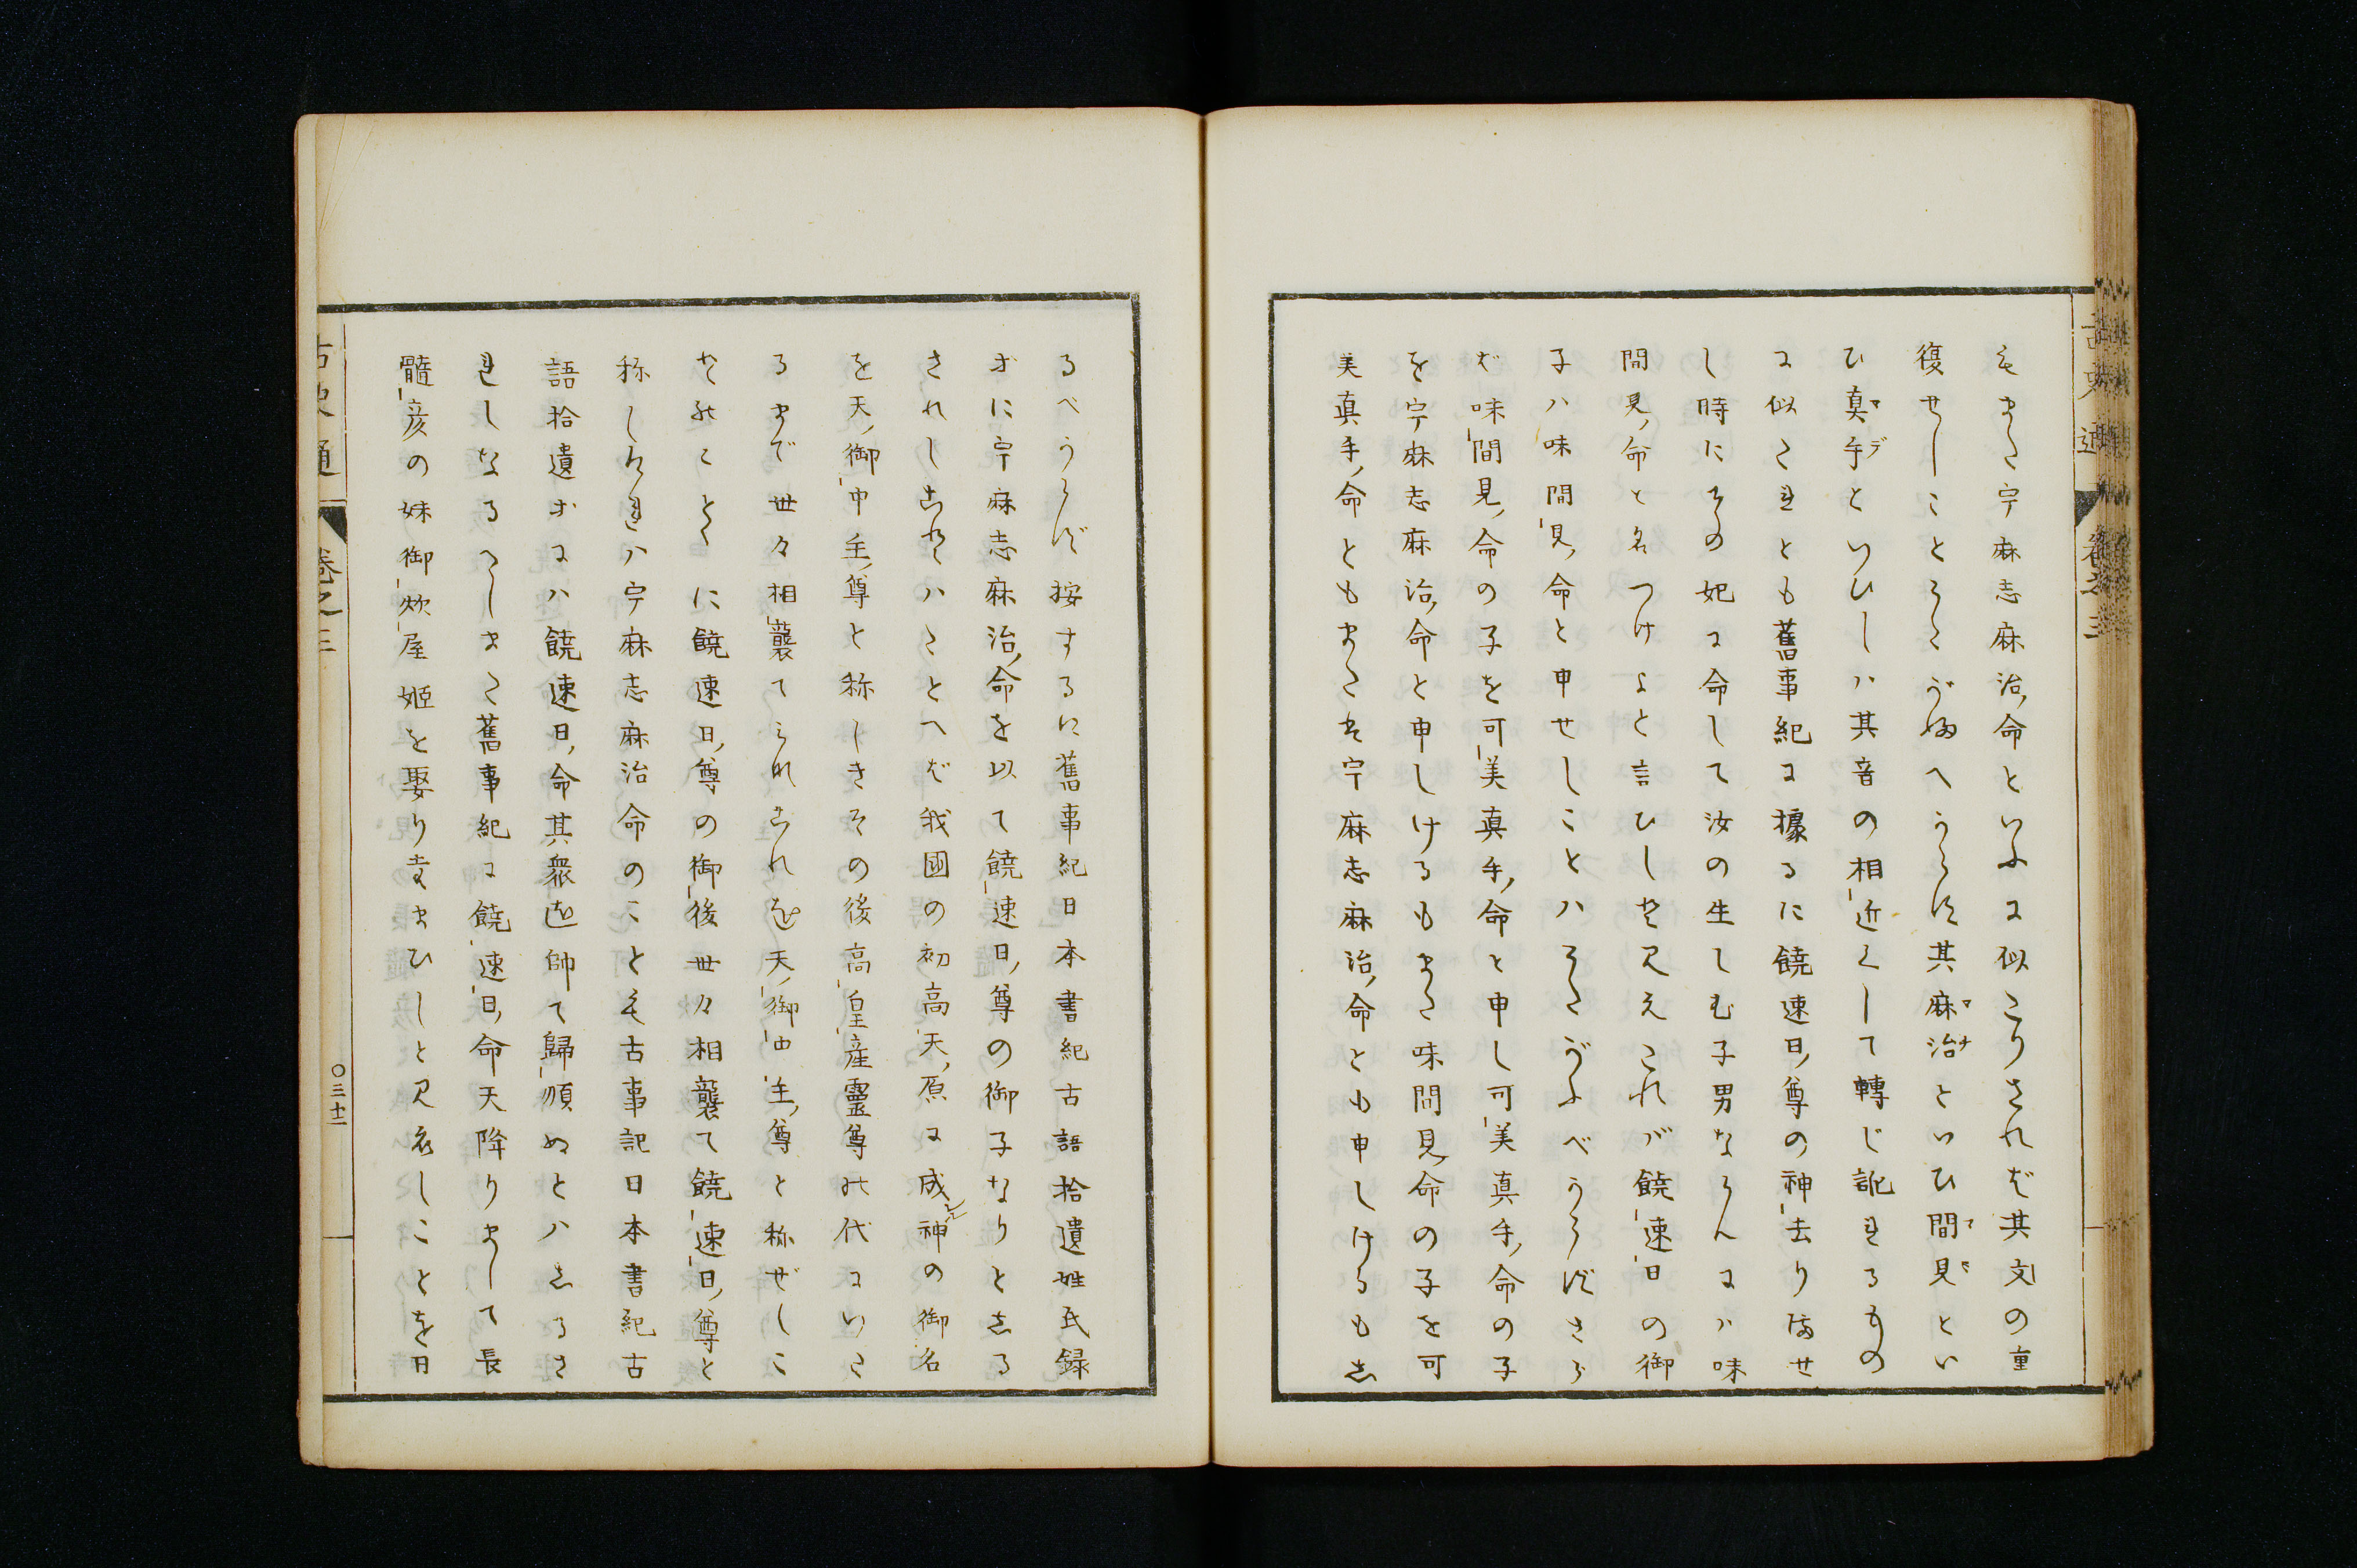 もまた宇麻志麻治命といふに似たりされば其文の重
復せしことうたがふへうらす其麻治といひ間見とい
ひ真手といひしハ其音の相近くして轉じ訛れるもの
に似たれとも舊事紀に據るに饒速日尊の神去りませ
し時にその妃に命して汝の生しむ子男ならんにハ味
間見命と名つけよと言ひしと見えこれバ饒速日の御
子ハ味間見命と申せしことハうたがふべうらずさら
ば味間見命の子を可美真手命と申し可美真手命の子
を宇麻志麻治命と申しけるもまた味間見命の子を可
美真手命ともまたは宇麻志麻治命とも申しけるもし
るべうらず按するに舊事紀日本書紀古語拾遺姓氏録
オに宇麻志麻治命を以て饒速日尊の御子なりとしる
されしあれハたとへば我國の初高天原に成神の御名
を天御中主尊と称しきその後高皇産靈尊の代にいた
るまで世々相襲てられあれを天御中主尊と称ぜしこ
とのことく に饒速日尊の御後世々相襲て饒速日尊と
称しけれハ宇麻志麻治命のことも古事記日本書紀古
語拾遺オにハ饒速日命其衆を帥て歸順ぬとハしるさ
れしなるへしまた舊事紀に饒速日命天降りまして長
髓彦の妹御炊屋姫を娶り玄まひしと見えしことを日
古史通 巻之三
○三十二
古史通 巻之三